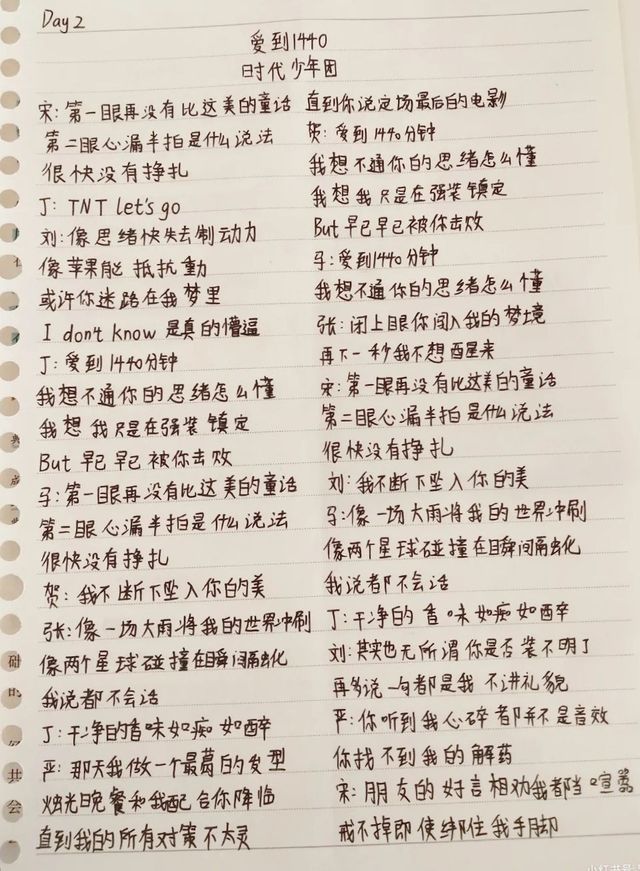 Day 2
爱到1440
时代少年团
宋:第一眼再没有比这美的童话
第二眼心漏半拍是什么说法
很快没有挣扎
丁:TNT let's go
刘:像思绪快失去制动力
像苹果能抵抗重力
或许你迷路在我梦里
I don't know 是真的懵逼
丁:爱到1440分钟
我想不通你的思绪怎么懂
我想我只是在强装镇定
But 早已早已被你击败
马:第一眼再没有比这美的童话
第二眼心漏半拍是什么说法
很快没有挣扎
贺:我不断下坠入你的美
张:像一场大雨将我的世界冲刷
像两个星球碰撞在瞬间融化
我说都不会话
丁:干净的香味如痴如醉
严:那天我做一个最蓦的发型
烛光晚餐和我配合你降临
直到我的所有对策不太灵
直到你说定场最后的电影
贺:爱到1440分钟
我想不通你的思绪怎么懂
我想我只是在强装镇定
But 早已早已被你击败
马:爱到1440分钟
我想不通你的思绪怎么懂
张:闭上眼你闯入我的梦境
再下一秒我不想醒来
宋:第一眼再没有比这美的童话
第二眼心漏半拍是什么说法
很快没有挣扎
刘:我不断下坠入你的美
马:像一场大雨将我的世界冲刷
像两个星球碰撞在瞬间融化
我说都不会话
丁:干净的香味如痴如醉
刘:其实也无所谓你是否装不明了
再多说一句都是我不讲礼貌
严:你听到我心碎都并不是音效
你找不到我的解药
宋:朋友的好言相劝我都当喧嚣
戒不掉即使绑住我手脚